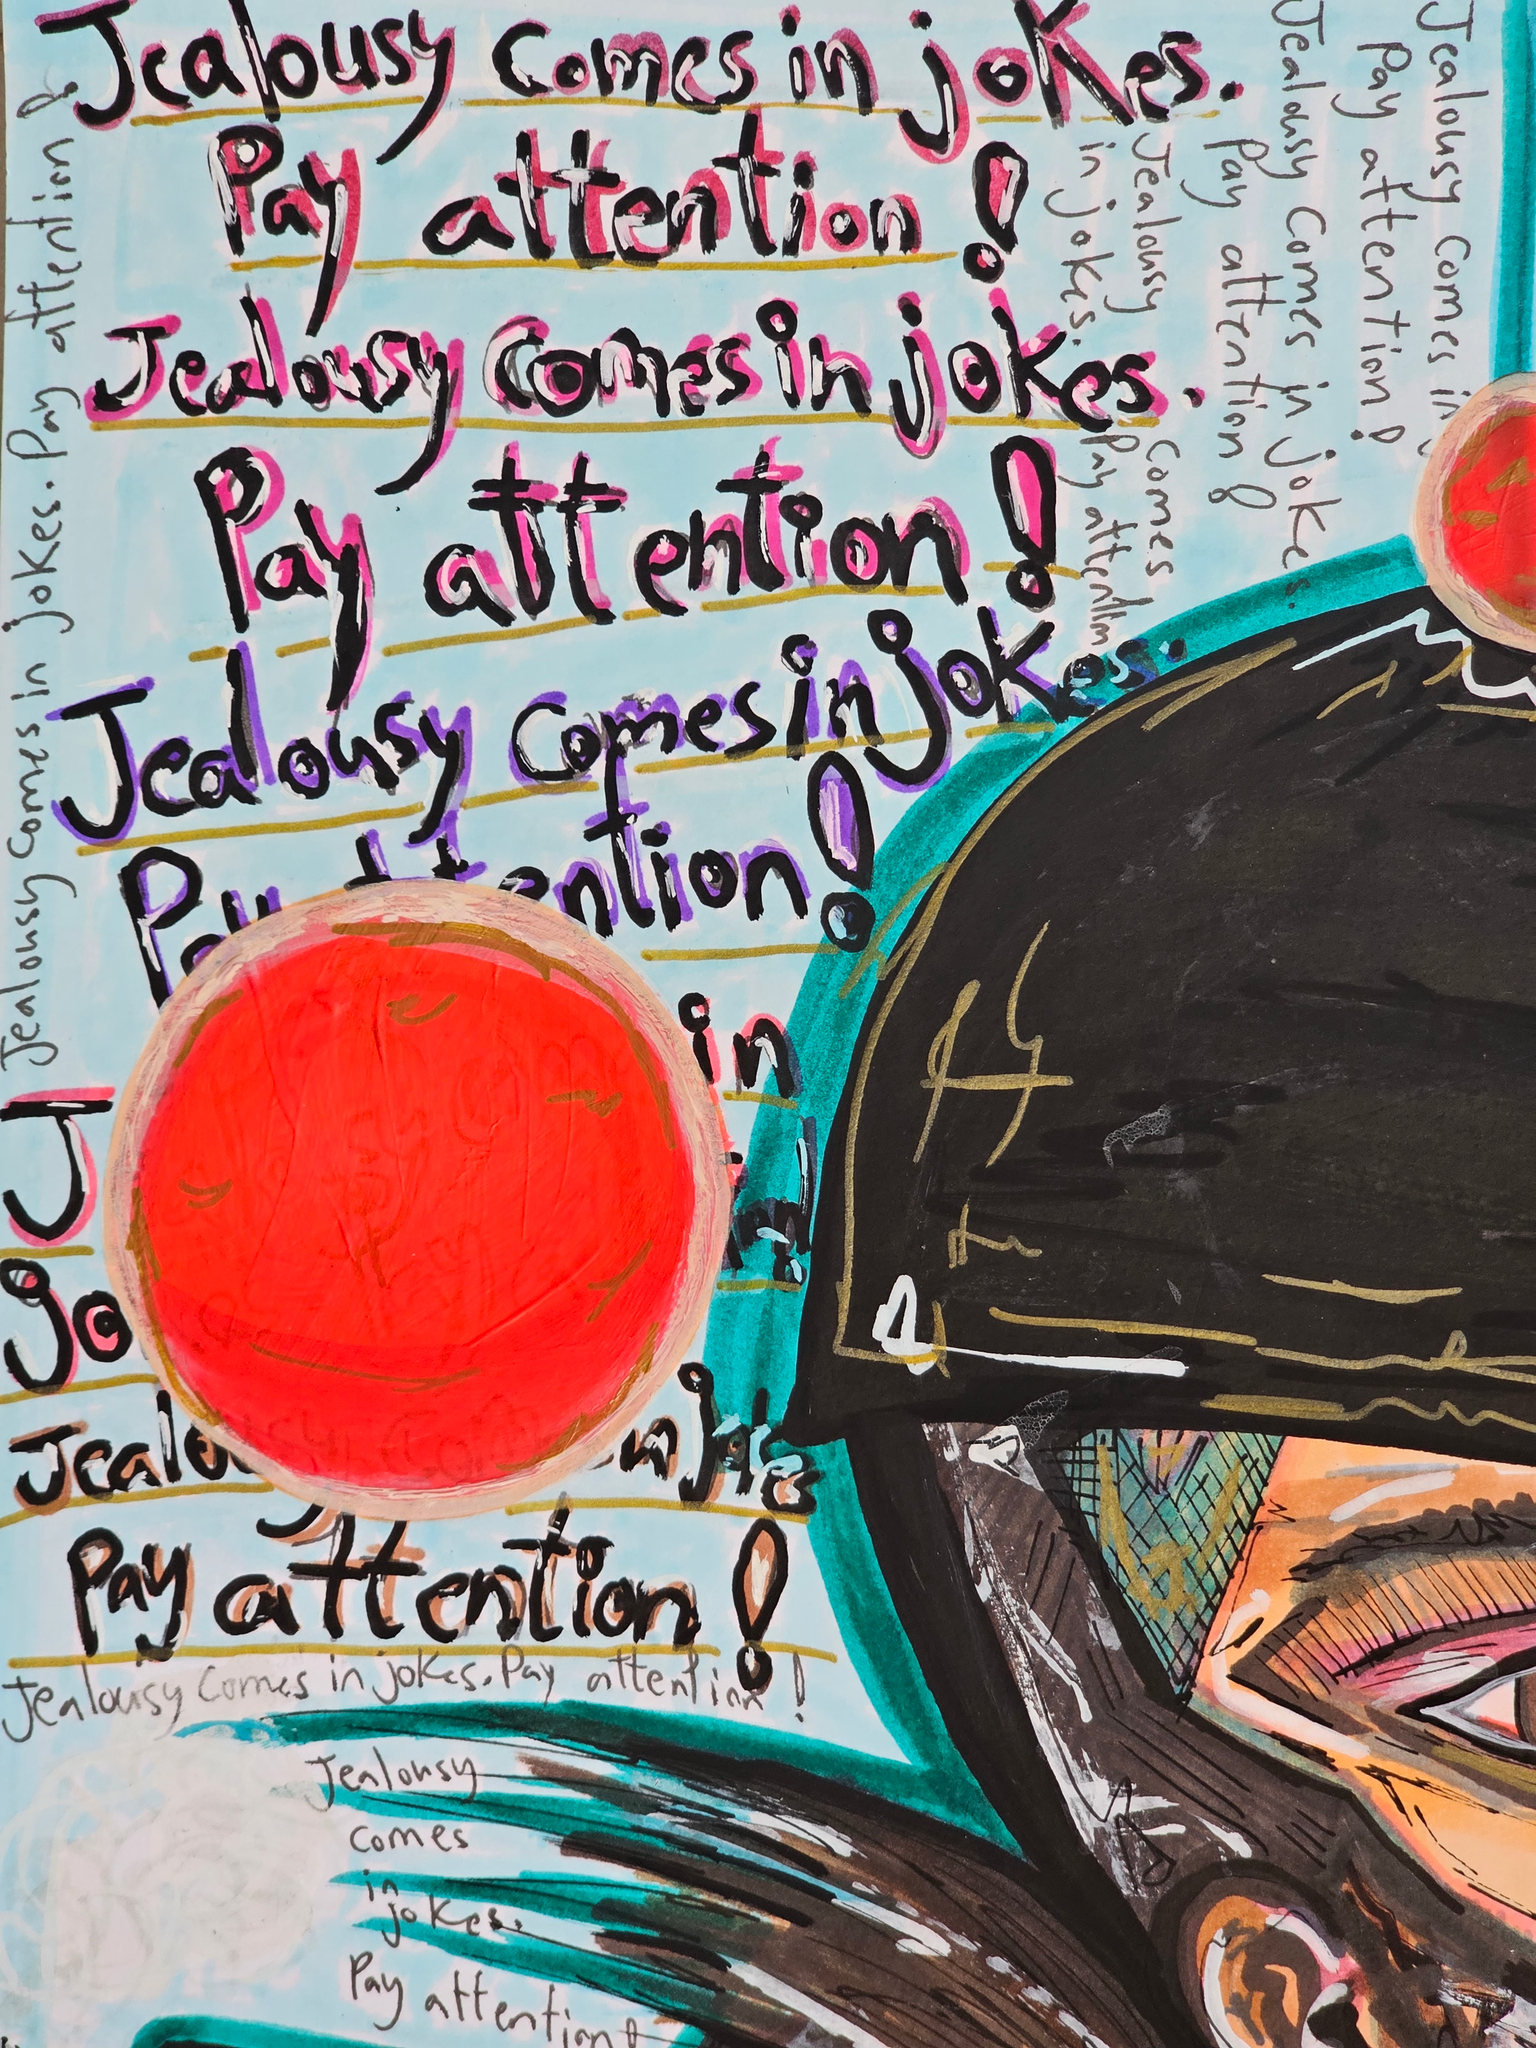 Jealousy comes in jokes.
Pay attention!
Jealousy comes in jokes.
Pay attention!
Jealousy comes in jokes.
Pay attention!
in
J
jo
Jealo in jokes
Pay attention!
Jealousy comes in jokes. Pay attention!
Jealousy
comes
in
jokes.
Pay attention!
Jealousy comes in jokes. Pay attention!
Jealousy comes
in jokes. Pay attention
Jealousy comes in jokes.
Pay attention!
Jealousy comes in
Pay attention!